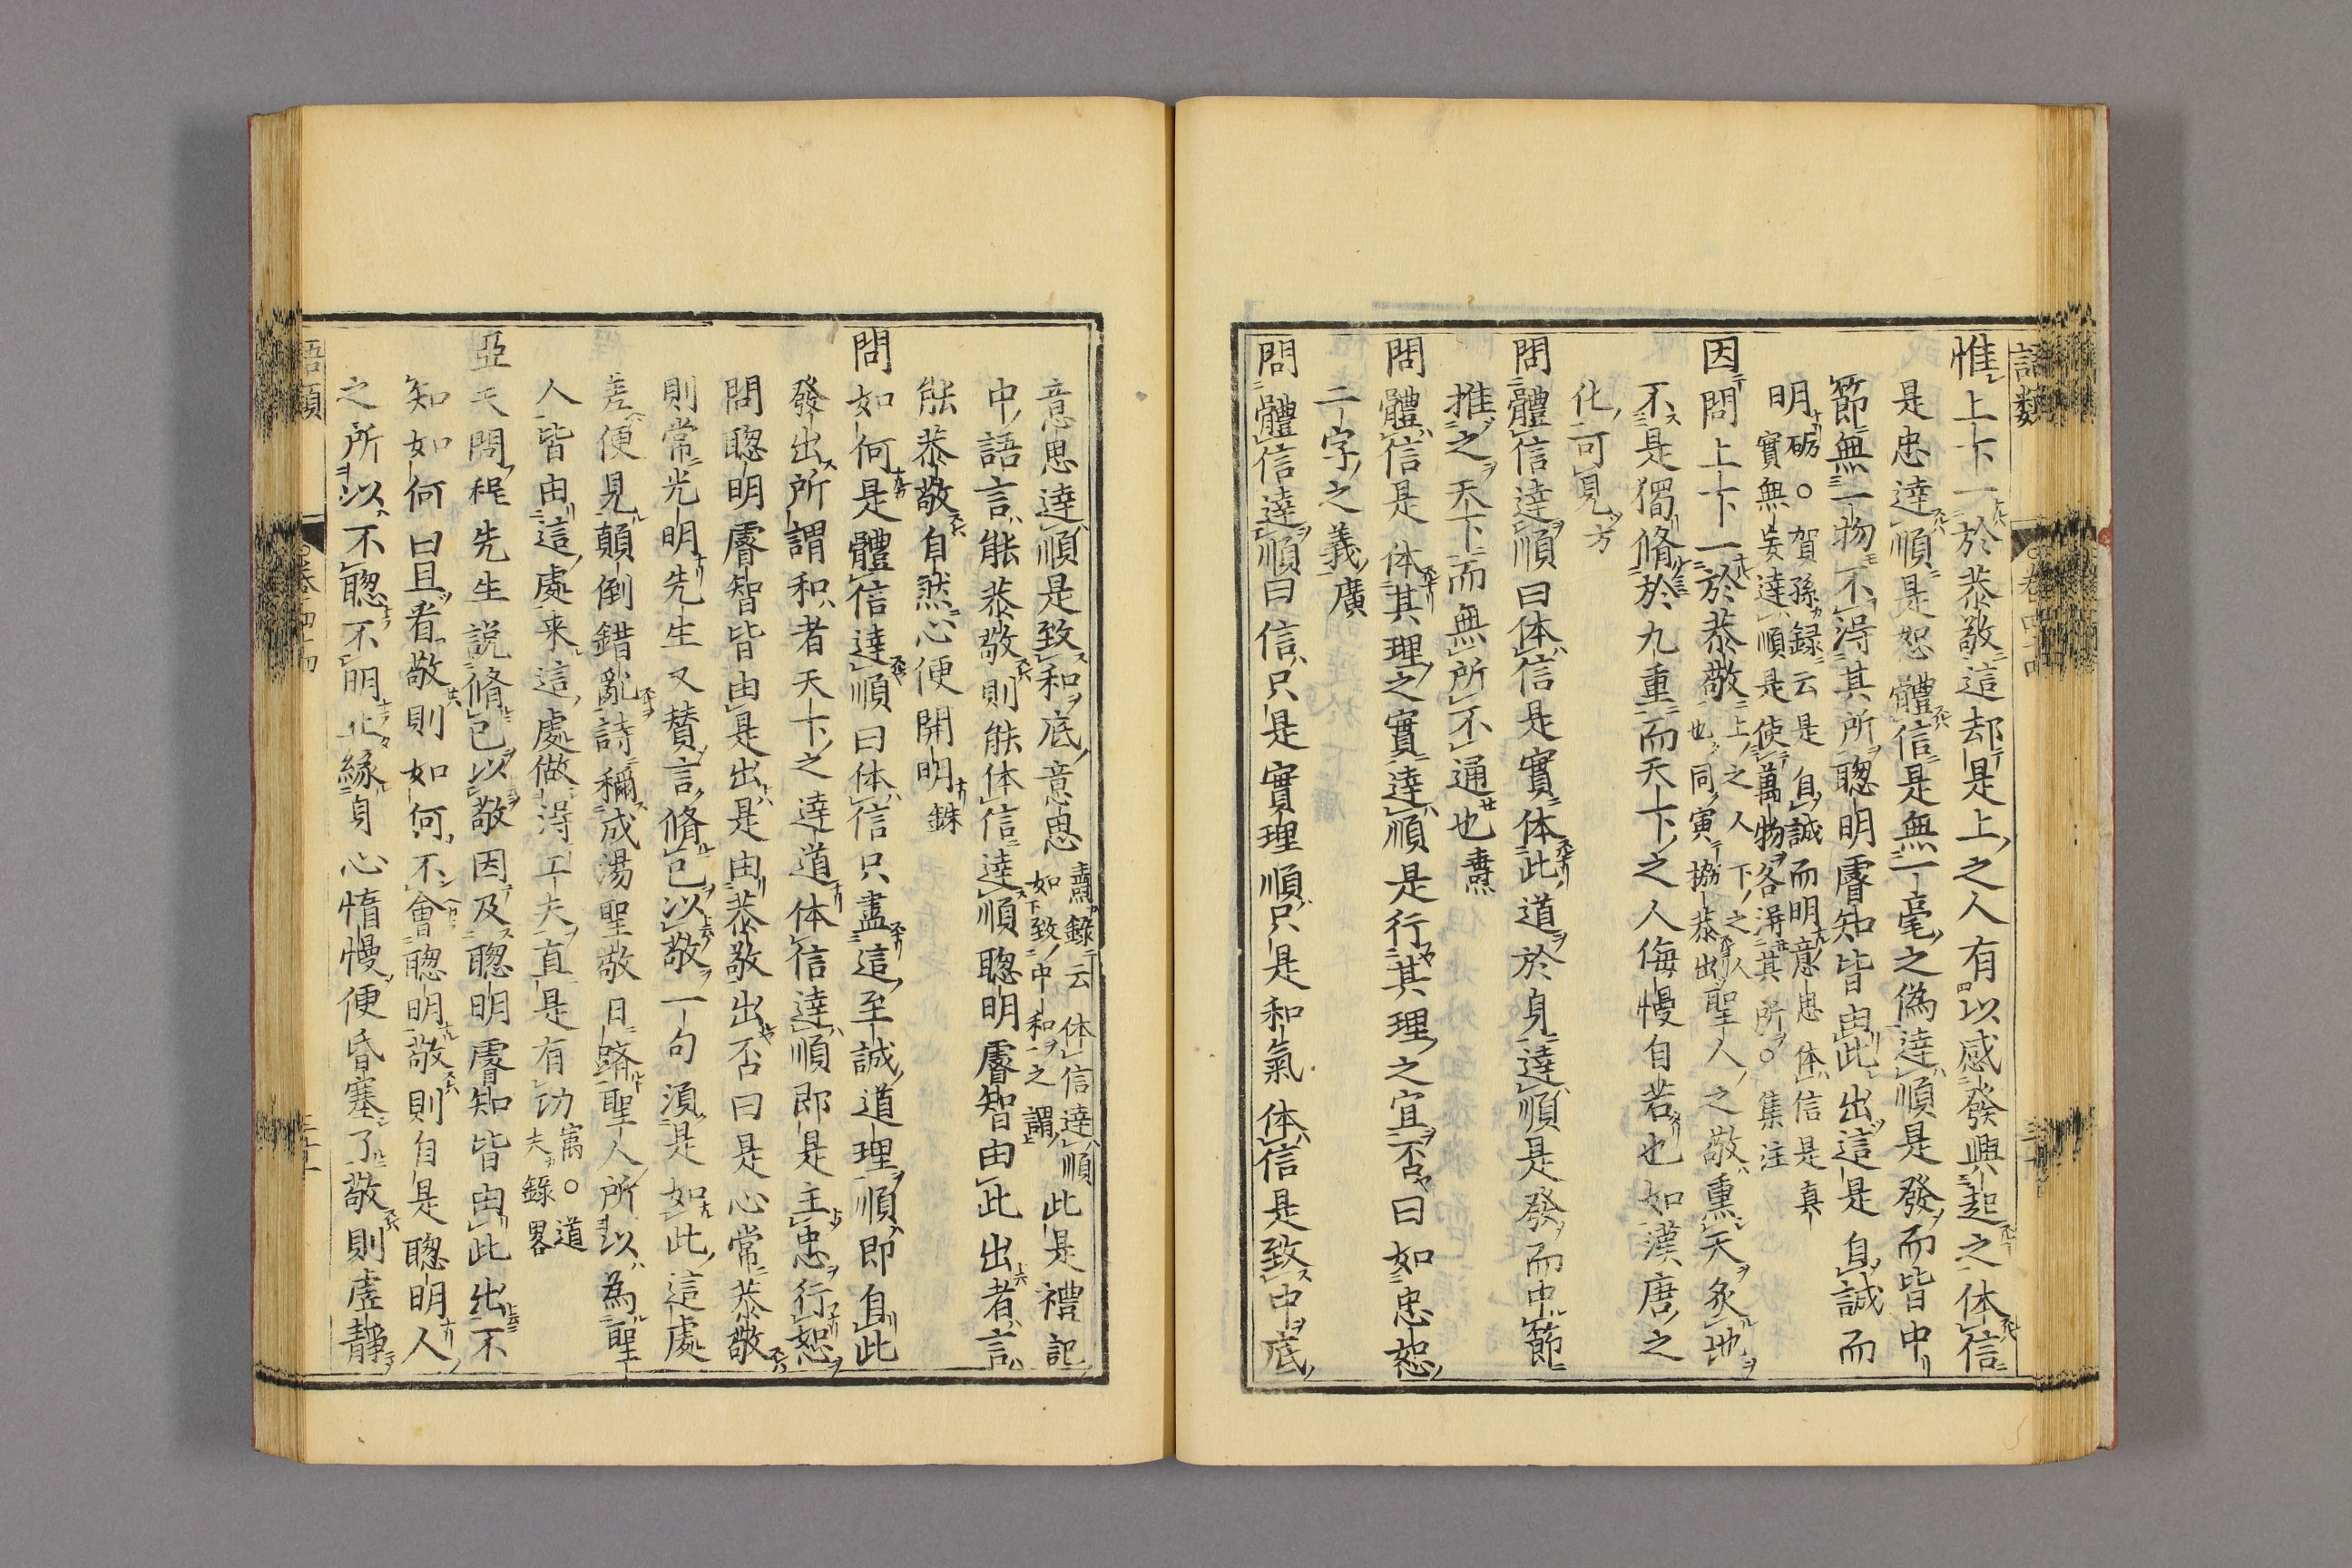 語類 卷四十四 三十
惟上下一於恭敬這却是上之人有以感發興起之体信
是忠達順是恕體信是無一毫之偽達順是發而皆中
節無一物不得其所聰明睿知皆由此出這是自誠而
明砺○賀孫録云是自誠而明意思体信是真
實無妄達順是使萬物各得其所○集注
因問上下一於恭敬上之人下之人
也同寅協恭出聖人之敬熏天炙地
不是獨脩於九重而天下之人侮慢自若也如漢唐之
化可見方
問體信達順曰体信是實体此道於身達順是發而中節
推之天下而無所不通也燾
問體信是体其理之實達順是行其理之宜否曰如忠恕
二字之義廣
問體信達順曰信只是實理順只是和氣体信是致中底
意思達順是致和底意思燾錄云体信達順
如下致中和之謂
此是禮記
中語言能恭敬則能体信達順聰明睿智由此出者言
能恭敬自然心便開明銖
問如何是體信達順曰体信只盡這至誠道理順即自此
發出所謂和者天下之達道体信達順即是主忠行恕
問聰明睿智皆由是出是由恭敬出否曰是心常恭敬
則常光明先生又賛言脩己以敬一句須是如此這處
差便見顛倒錯亂詩稱成湯聖敬日躋聖人所以為聖
人皆由這處来這處做得工夫直是有功寓○道
夫錄畧
亞夫問程先生説脩己以敬因及聰明睿知皆由此出不
知如何曰且看敬則如何不會聰明敬則自是聰明人
之所以不聰不明止緣身心惰慢便昏塞了敬則虛靜
語類 卷四十四 三十一